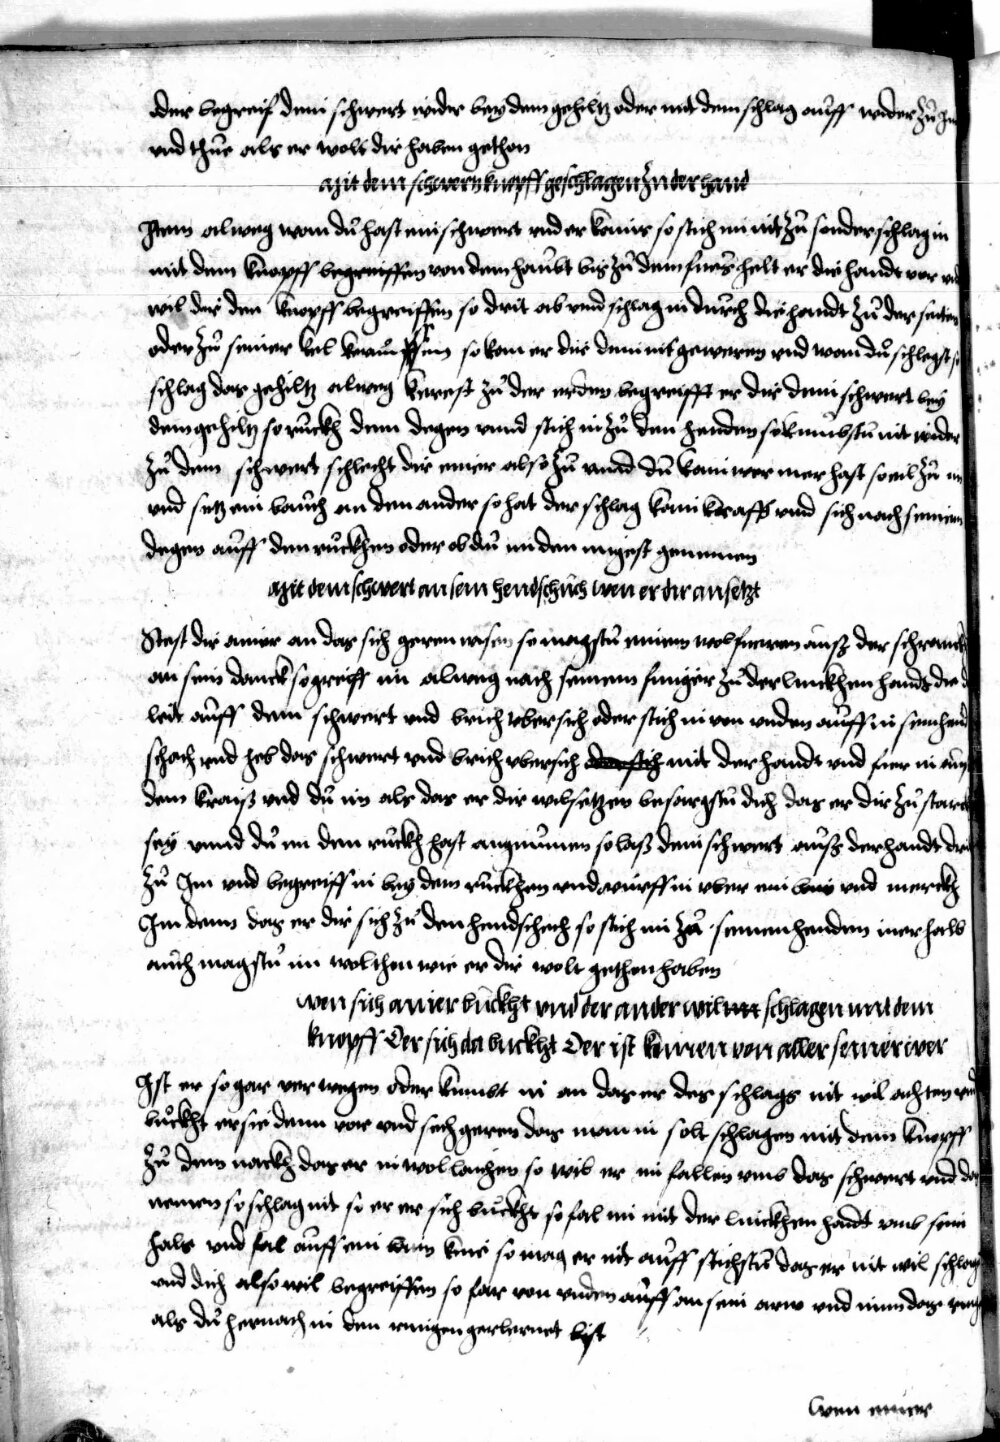 oder begreif dein schwert wider bey dem gehiltz oder mit dem schlag auff wider zů Im
vnd thue als er wolt dir haben gethon
Mit dem schwertzknopff geschlagen zu der hand
Item alweg wan dů hast ein schwert vnd er keins so stich im nit zů sonder schlag in
mit dem knopff begreiffen von dem haůbt bis zů dem fues helt er die handt vor vnd
wil dir den knopff begreiffen so drit ab vnd schlag in důrch die handt zů der seiten
oder zů seiner so kan er dir den nit geweren vnd wan dů schlegst so
schlag das gehiltz alweg zů der erden begreifft er dir dein schwert bey
dem gehiltz so růckh dein degen vnnd stich in zů den henden so kumbstů nit wider
zů dem schwert schlecht dir einer also zů vnnd dů kain wer mer hast so eil zů im
vnd setz ein baůch an den ander so hat der schlag kain krafft vnd sich nach seinem
degen aůff den růckhen oder ob dů im den mugest genemen
Mit dem schwert an sein hendschůch wen er dir an setzt
Setzt dir ainer an das sich geren wisen so magstů einem wol fueren aůsz der schranckh
an sein danck so greiff im alweg nach seinem finger zů der linckhen handt die
leit aůff dem schwert vnd brich vbersich oder stich in von vnden aůff in sein hend
schoch vnd heb das schwert vnd brich vbersich mit der handt vnd fuer in aůs
dem kraisz vnd dů im als das er dir wil setzen besorgstů dich das er dir zů starck
sey vnnd dů im den růckh hast angenůmen so lasz dein schwert aůsz der handt drit
zů Im vnd begreiff in bey dem růckhen vnd würff in vber ein bain vnd merckh
Im dann das er dir sich zů den hendschech so stich im zů seinen henden inerhalb
aůch magstů im wolthon wie er dir wolt gethon haben
wen sich ainer bůckht vnd der ander wil im schlagen mit dem
knopff Der sich da buckht Der ist kumen von aller seiner wer
Ist er so gar verwegen oder kumbt in an das er des schlags nit wil achten vnd
bůckht er sie dann vor vnd sech geren das man in solt schlagen mit dem knopff
zů dem nackh das er in wol so wil er im fallen vmb das schwert vnd das
nemen so schlag nit so er er sich bůckht so fal im mit der linckhen handt vmb sein
hals vnd fal aůff ein knie so mag er nit aůff sichstů das er nit wil schlagen
vnd dich also wil begreiffen so far von vnden aůff an sein arm vnd nim das
als dů hernach in dem ringen gelernet bist
Wen einer